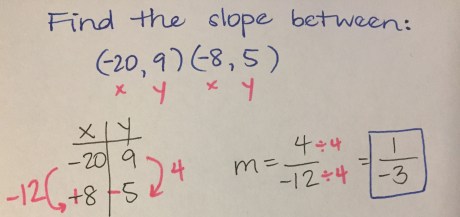 Find the slope between:
(-20, 9) (-8, 5)
x y x y
x | y
-20 | 9
+8 | -5
-12
4
m = 4 ÷4 / -12 ÷4 = 1 / -3